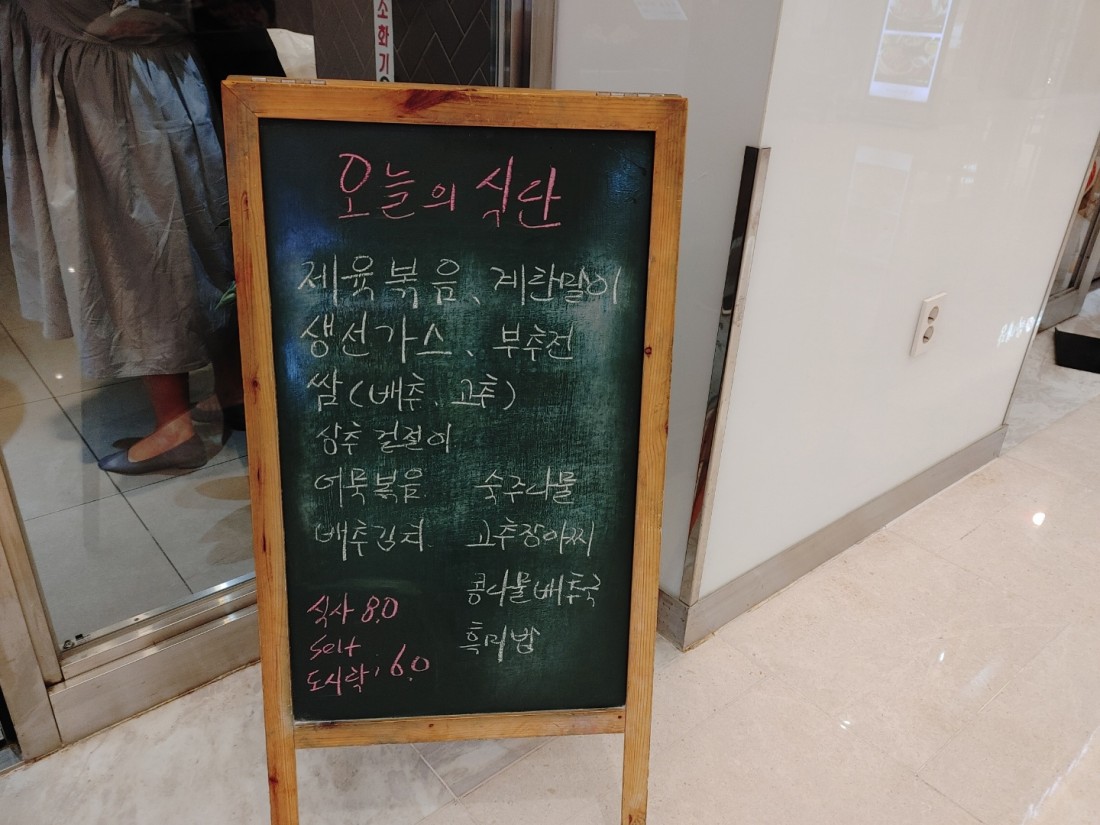 소화기
오늘의 식단
제육볶음、계란말이
생선가스、부추전
쌈(배추、고추)
상추 겉절이
어묵볶음 숙주나물
배추김치 고추장아찌
콩나물배추국
흑미밥
식사 8.0
self
도시락; 6.0